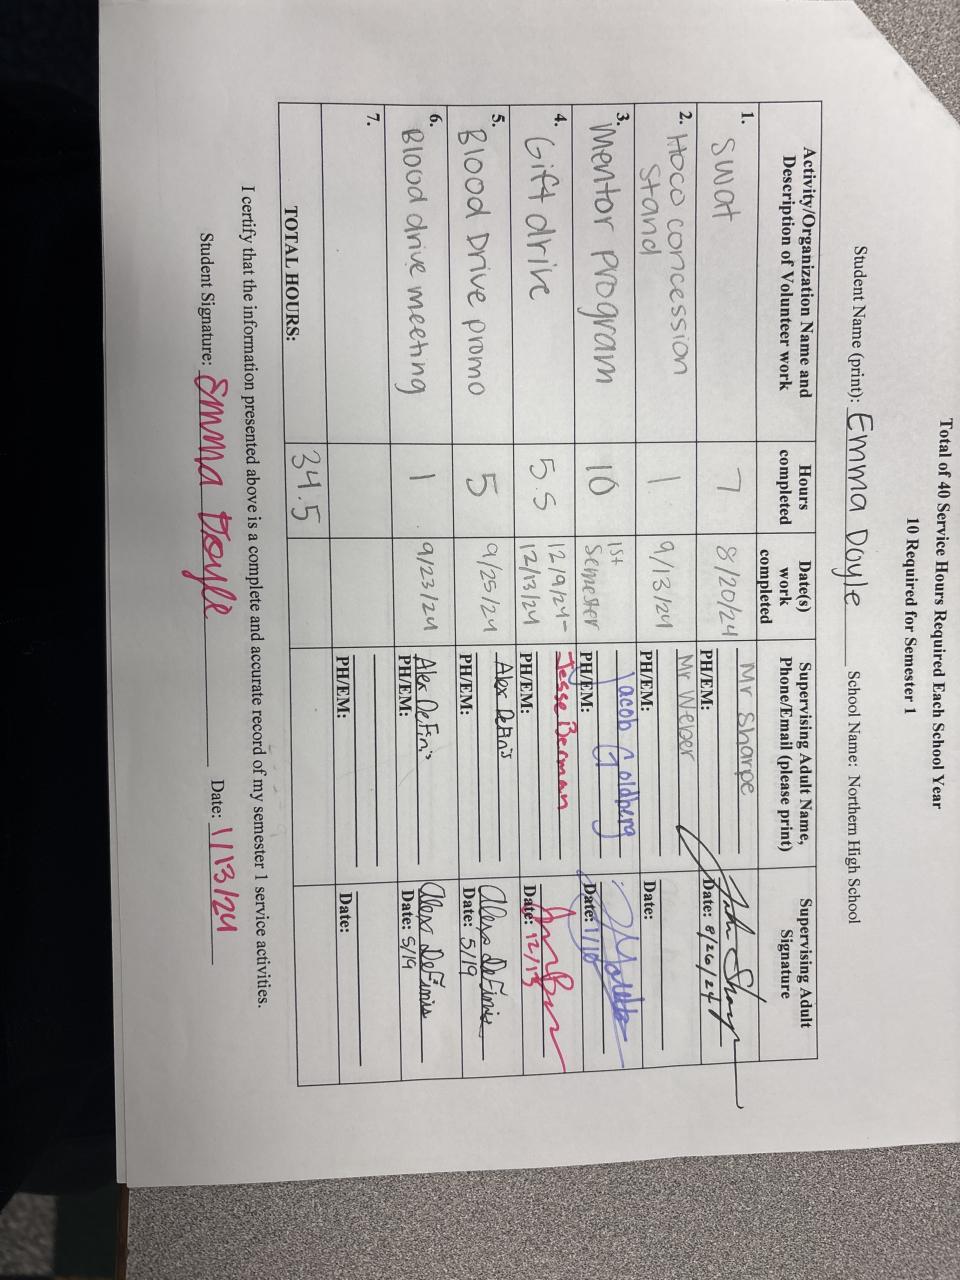 Total of 40 Service Hours Required Each School Year
10 Required for Semester 1
Student Name (print): Emma Doyle School Name: Northern High School
Activity/Organization Name and Description of Volunteer work
Hours completed
Date(s) work completed
Supervising Adult Name, Phone/Email (please print)
Supervising Adult Signature
1. Swat
7
8/20/24
Mr Sharpe
PH/EM:
Date: 8/26/24
2. Hoco concession
stand
1
9/13/24
Mr Weber
PH/EM:
Date:
3. Mentor program
10
1st
semester
Jacob Goldberg
PH/EM:
Date: 1/10
4. Gift drive
5.5
12/9/24-
12/13/24
Jesse Berman
PH/EM:
Date: 12/13
5. Blood Drive promo
5
9/25/24
Alex DeFinis
PH/EM:
Alexa DeFinis
Date: 5/19
6. Blood drive meeting
1
9/23/24
Alex DeFinis
PH/EM:
Alexa DeFinis
Date: 5/19
7.
PH/EM:
Date:
TOTAL HOURS:
34.5
I certify that the information presented above is a complete and accurate record of my semester 1 service activities.
Student Signature: Emma Doyle Date: 1/13/24